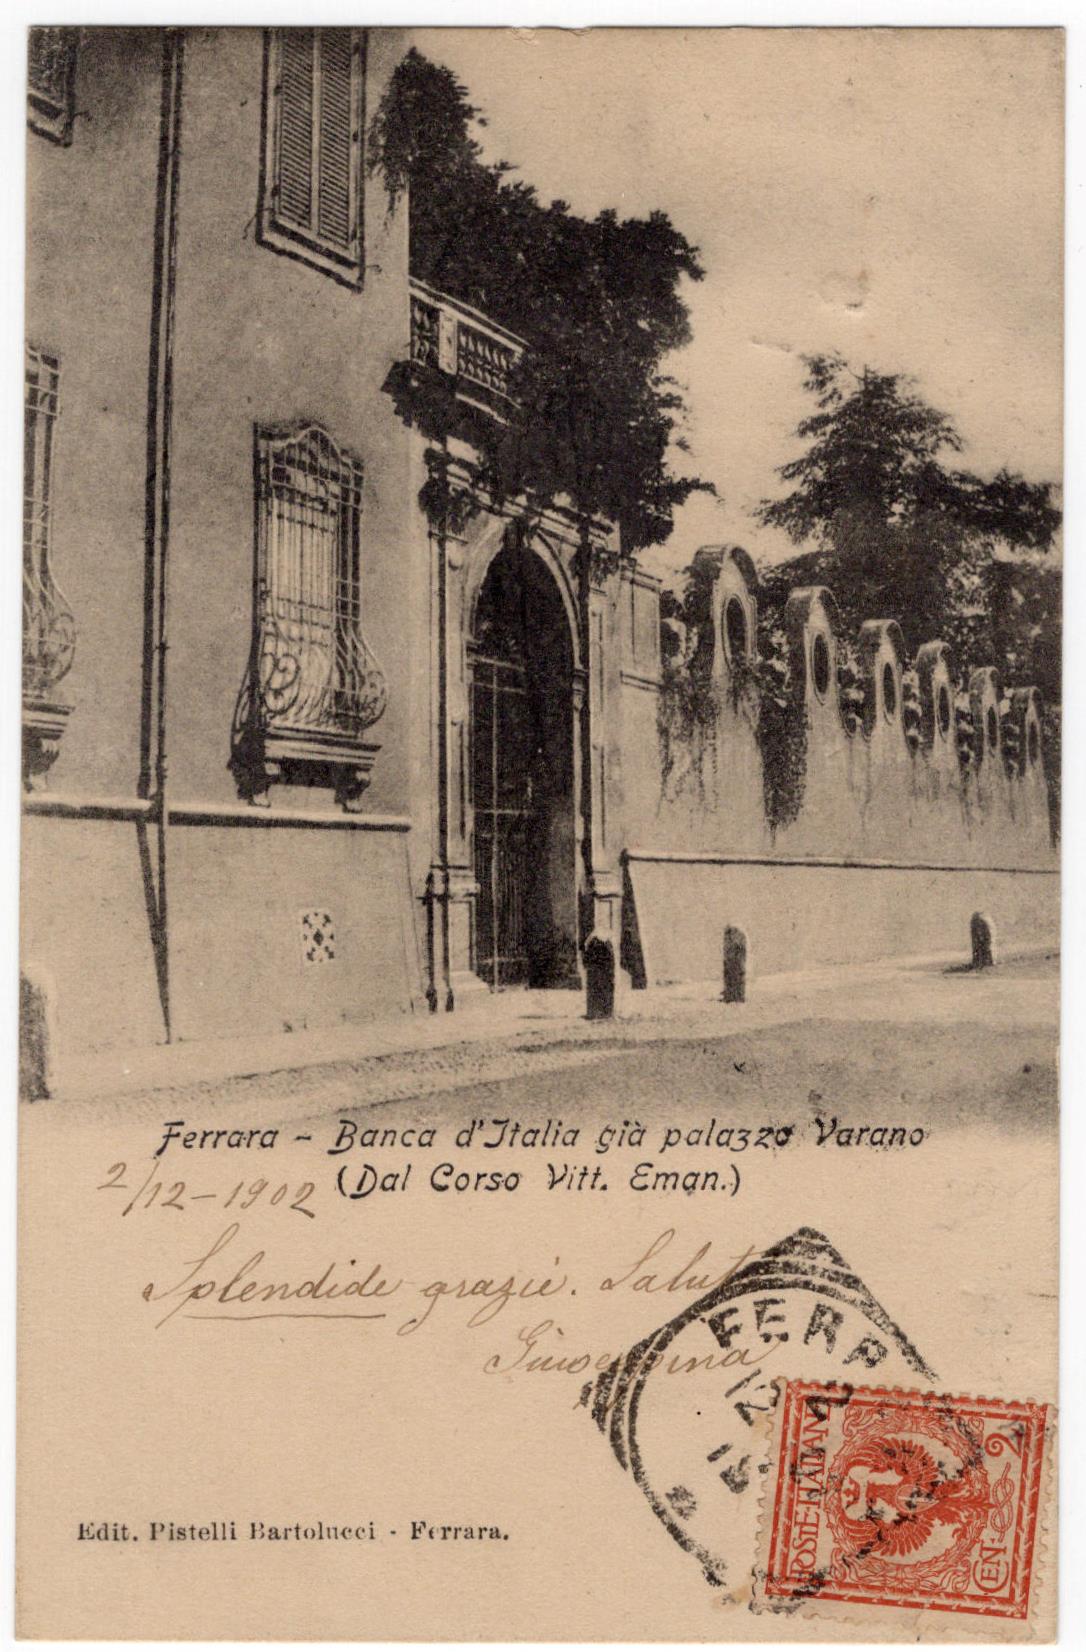 Ferrara - Banca d'Italia già palazzo Varano
(Dal Corso Vitt. Eman.)
2/12-1902
Splendide grazie. Saluti
Giuseppina
FERR
12
POSTE ITALIANE
CEN 2
Edit. Pistelli Bartolucci - Ferrara.